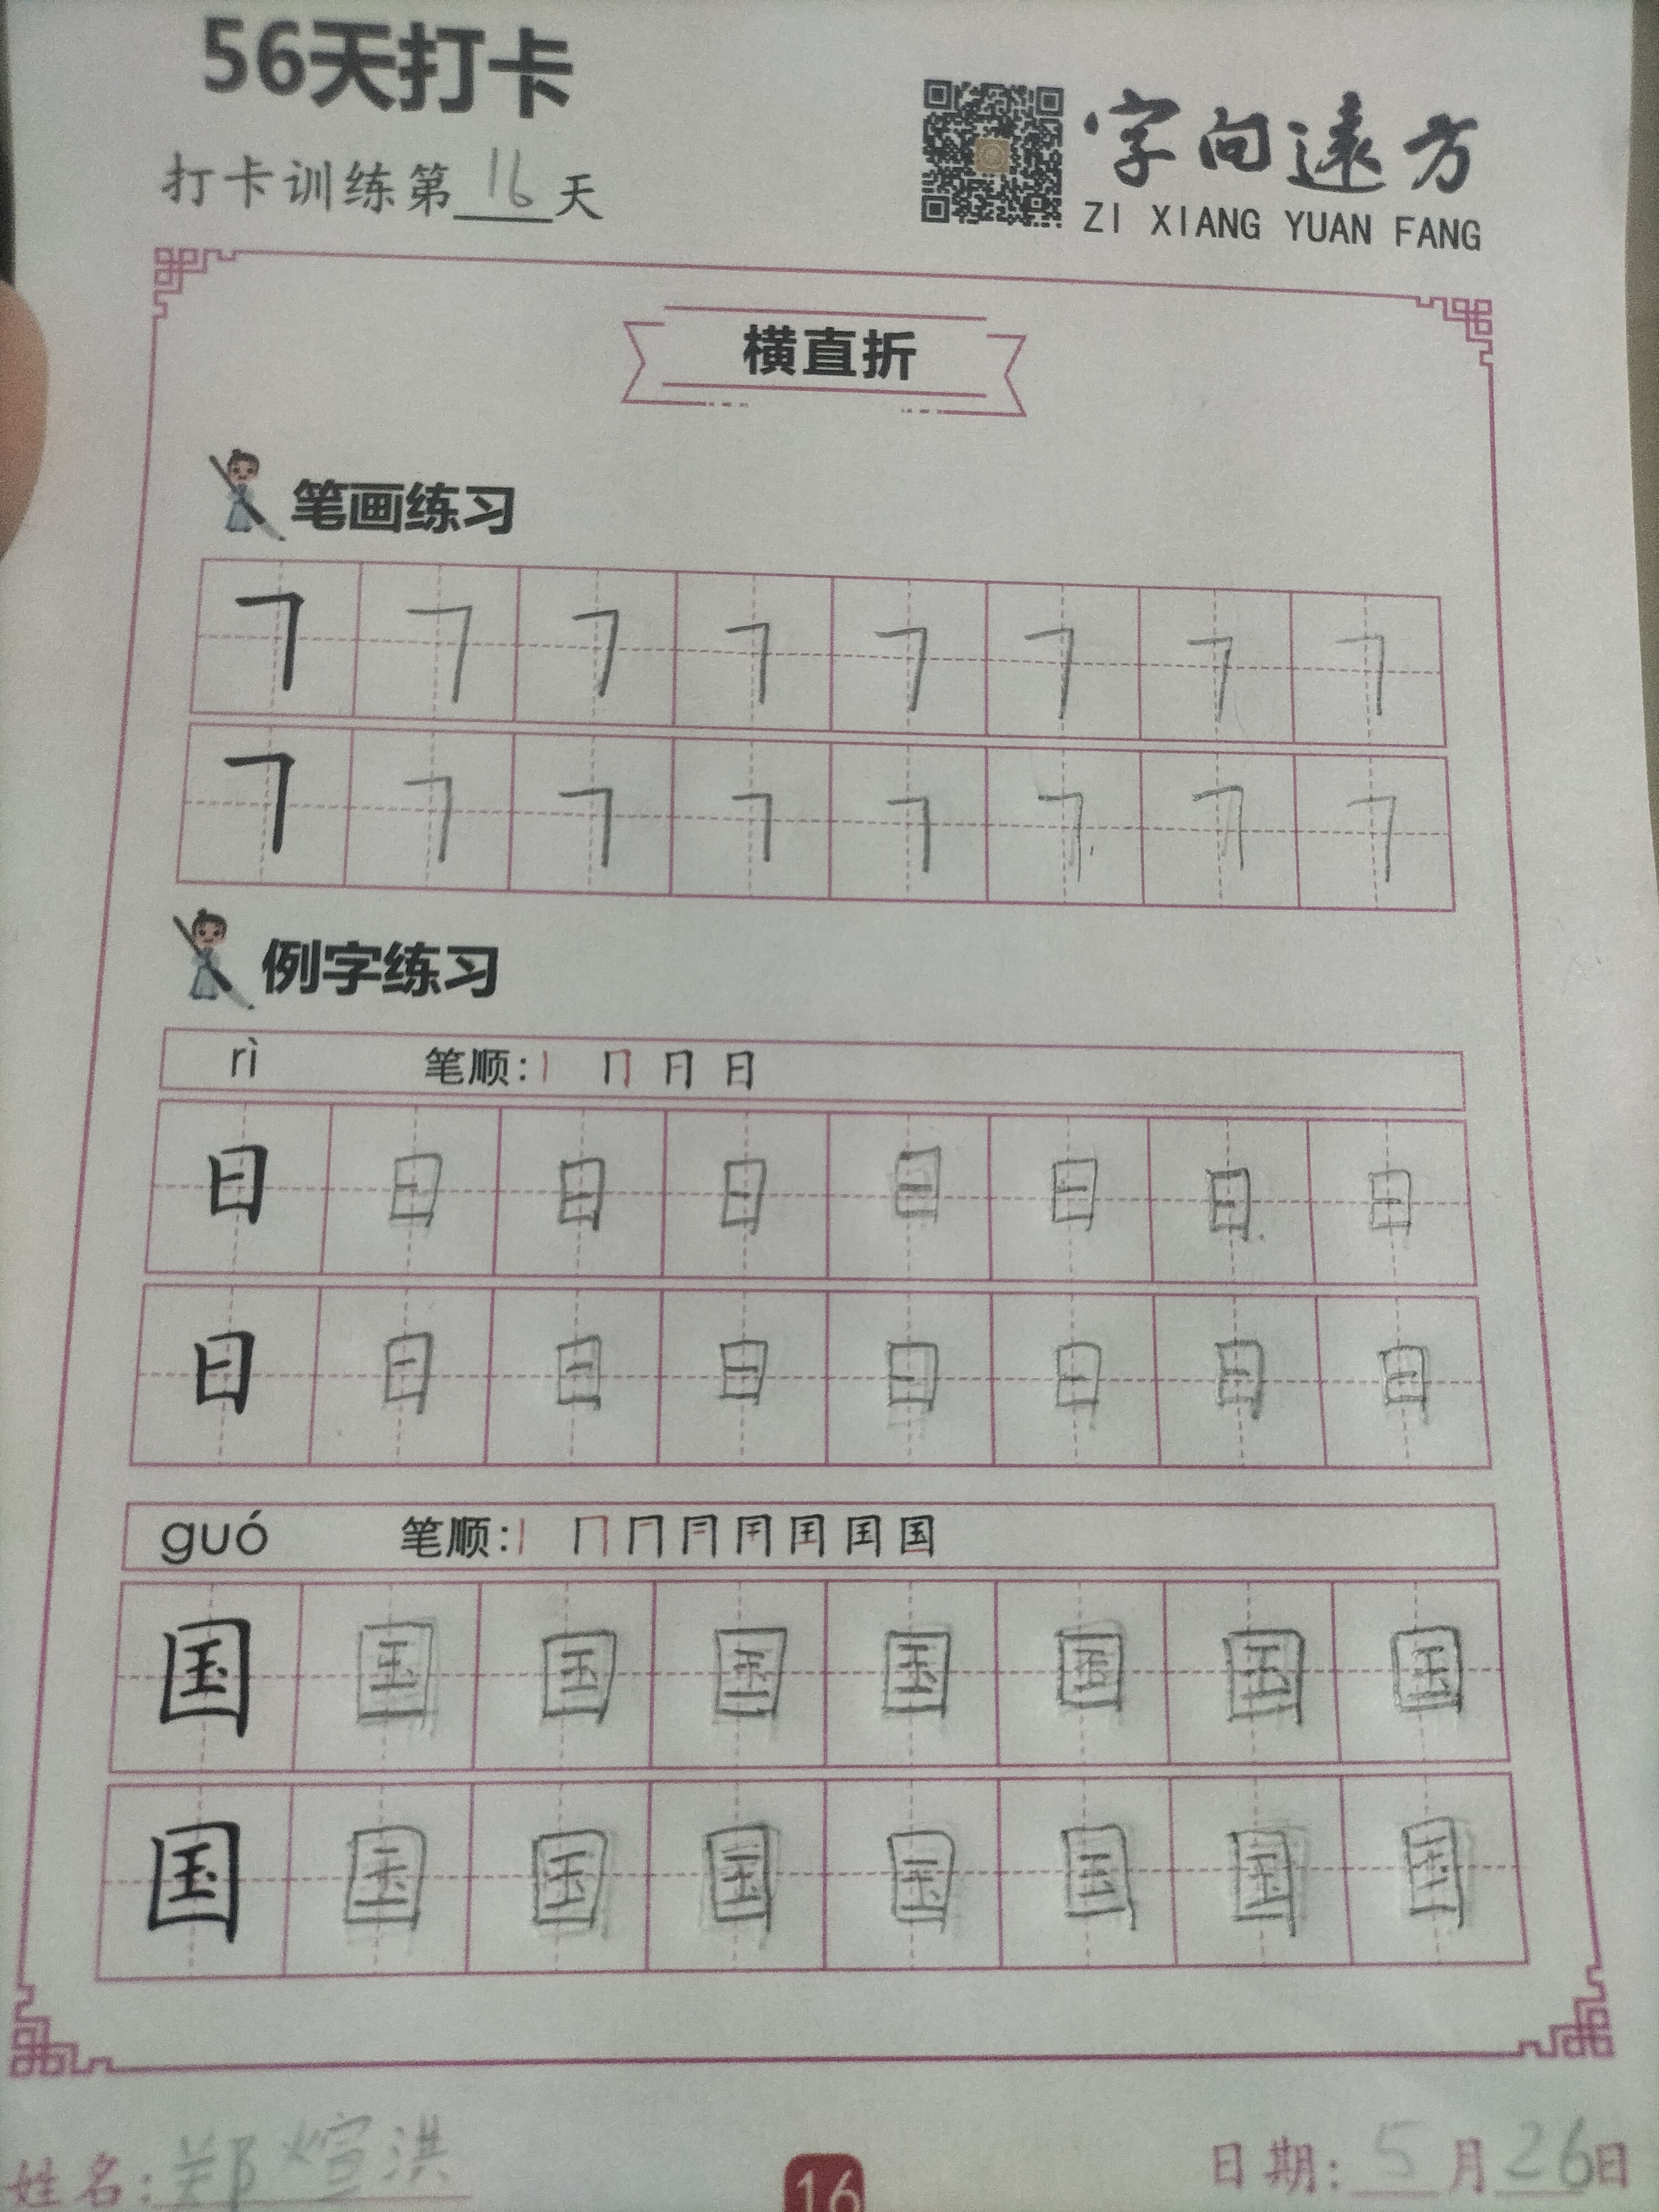 56天打卡
打卡训练第16天
字向遠方
ZI XIANG YUAN FANG
横直折
笔画练习
㇕ ㇕ ㇕ ㇕ ㇕ ㇕ ㇕ ㇕
㇕ ㇕ ㇕ ㇕ ㇕ ㇕ ㇕ ㇕
例字练习
rì 笔顺:丨 冂 日
日 日 日 日 日 日 日 日
日 日 日 日 日 日 日 日
guó 笔顺:丨 冂 国
国 国 国 国 国 国 国 国
国 国 国 国 国 国 国 国
姓名:郑煊洪
16
日期:5月26日